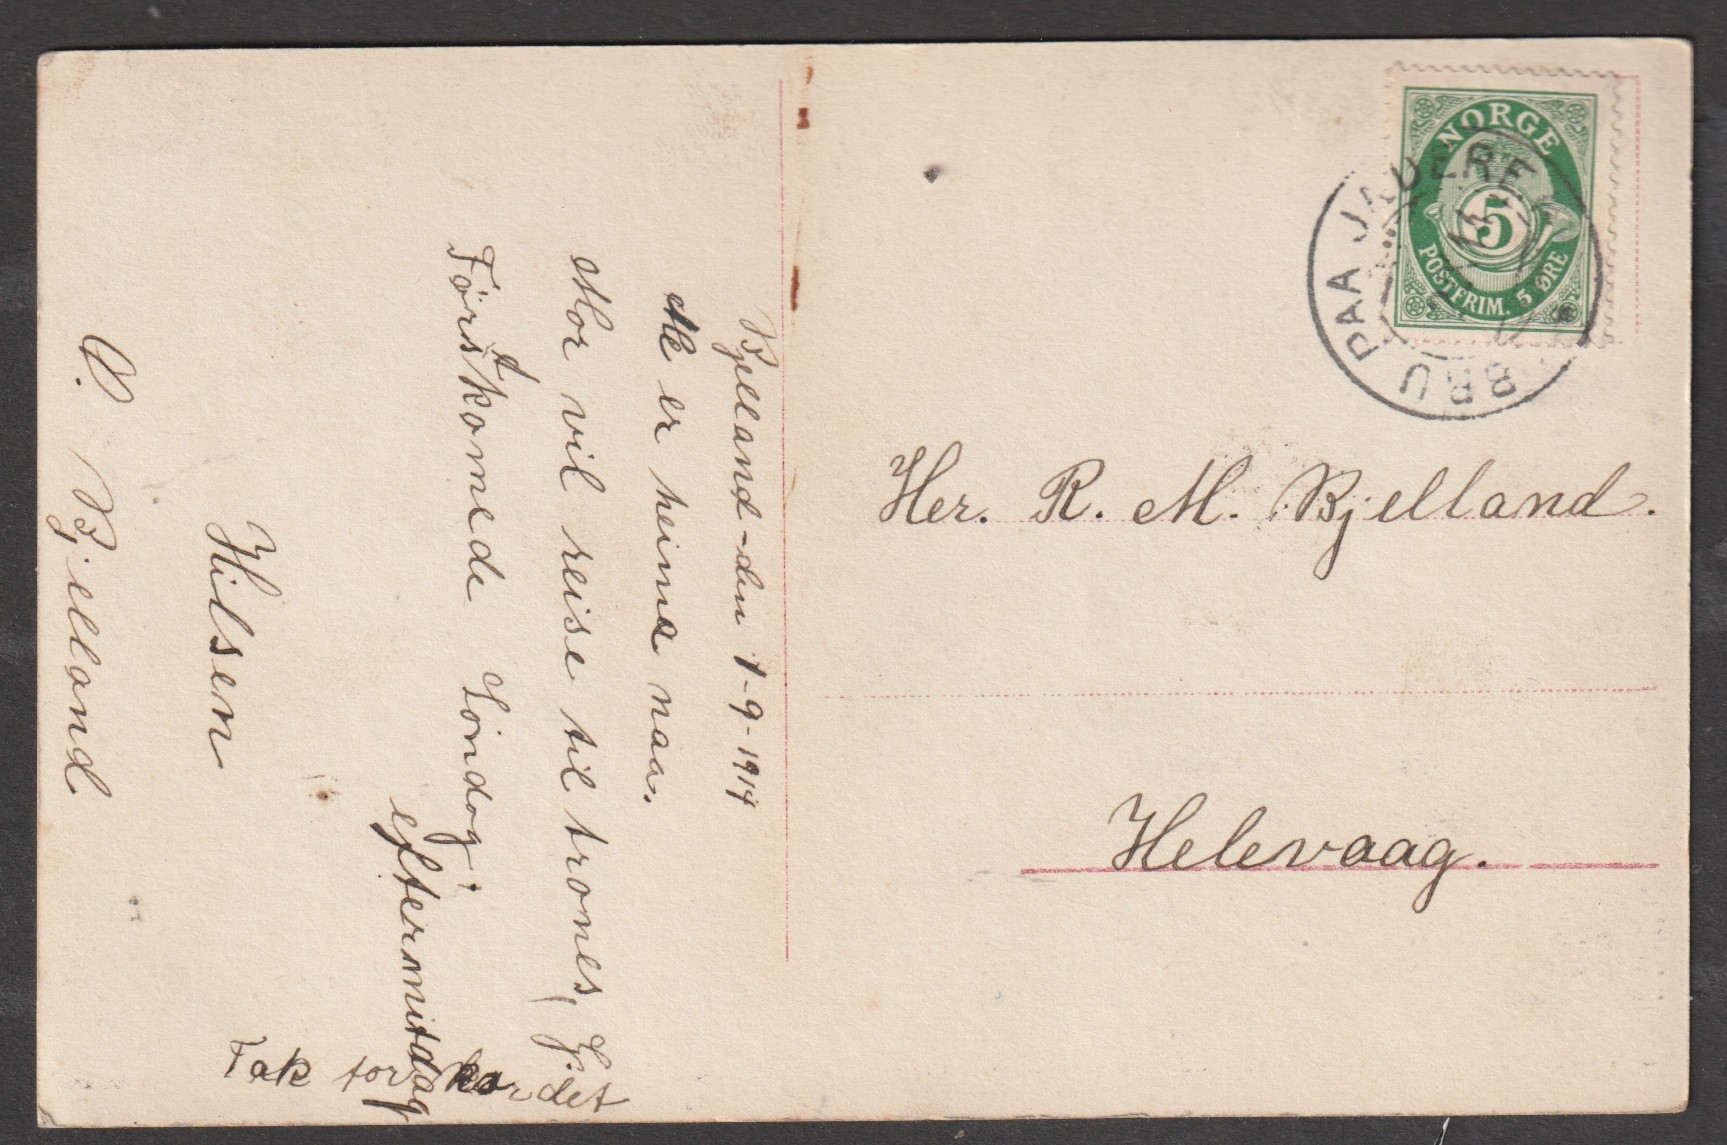 Bjelland-den 1-9-1914
Me er heima naa.
Mor vil reise til trones,
Førstkomede Søndag;
eftermitdag
Hilsen
O. Bjelland
Tak for kordet
NORGE
5
POSTFRIM. 5 ØRE
BRU PAA JÆDEREN
Her. R. M. Bjelland.
Helevaag.